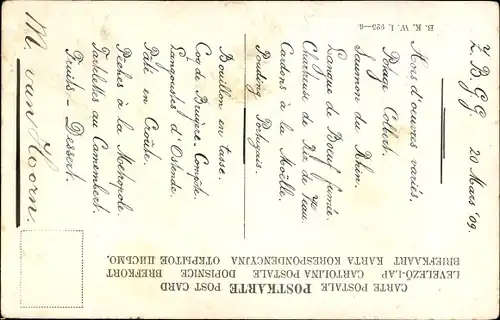 Z. B. G. G. 20 Mars '09.
Hors d'oeuvres variés.
Potage Colbert.
Saumon du Rhin.
Langue de Boeuf fumée.
Chartreux de Riz de Veau.
Cardons à la Moëlle.
Pouding Portugais.
Bouillon en tasse.
Coq de Bruyere - Compôte.
Langoustes d'Ostende.
Pâté en Croûte.
Pêches à la Metropole.
Tartelettes au Camembert.
Fruits - Dessert.
M. van Hoorn.
B. K. W. I. 925-6
CARTE POSTALE POSTKARTE POST CARD
LEVELEZŐ-LAP CARTOLINA POSTALE DOPISNICE BREFKORT
BRIEFKAART KARTA KORESPONDENCYJNA ОТКРЫТОЕ ПИСЬМО.